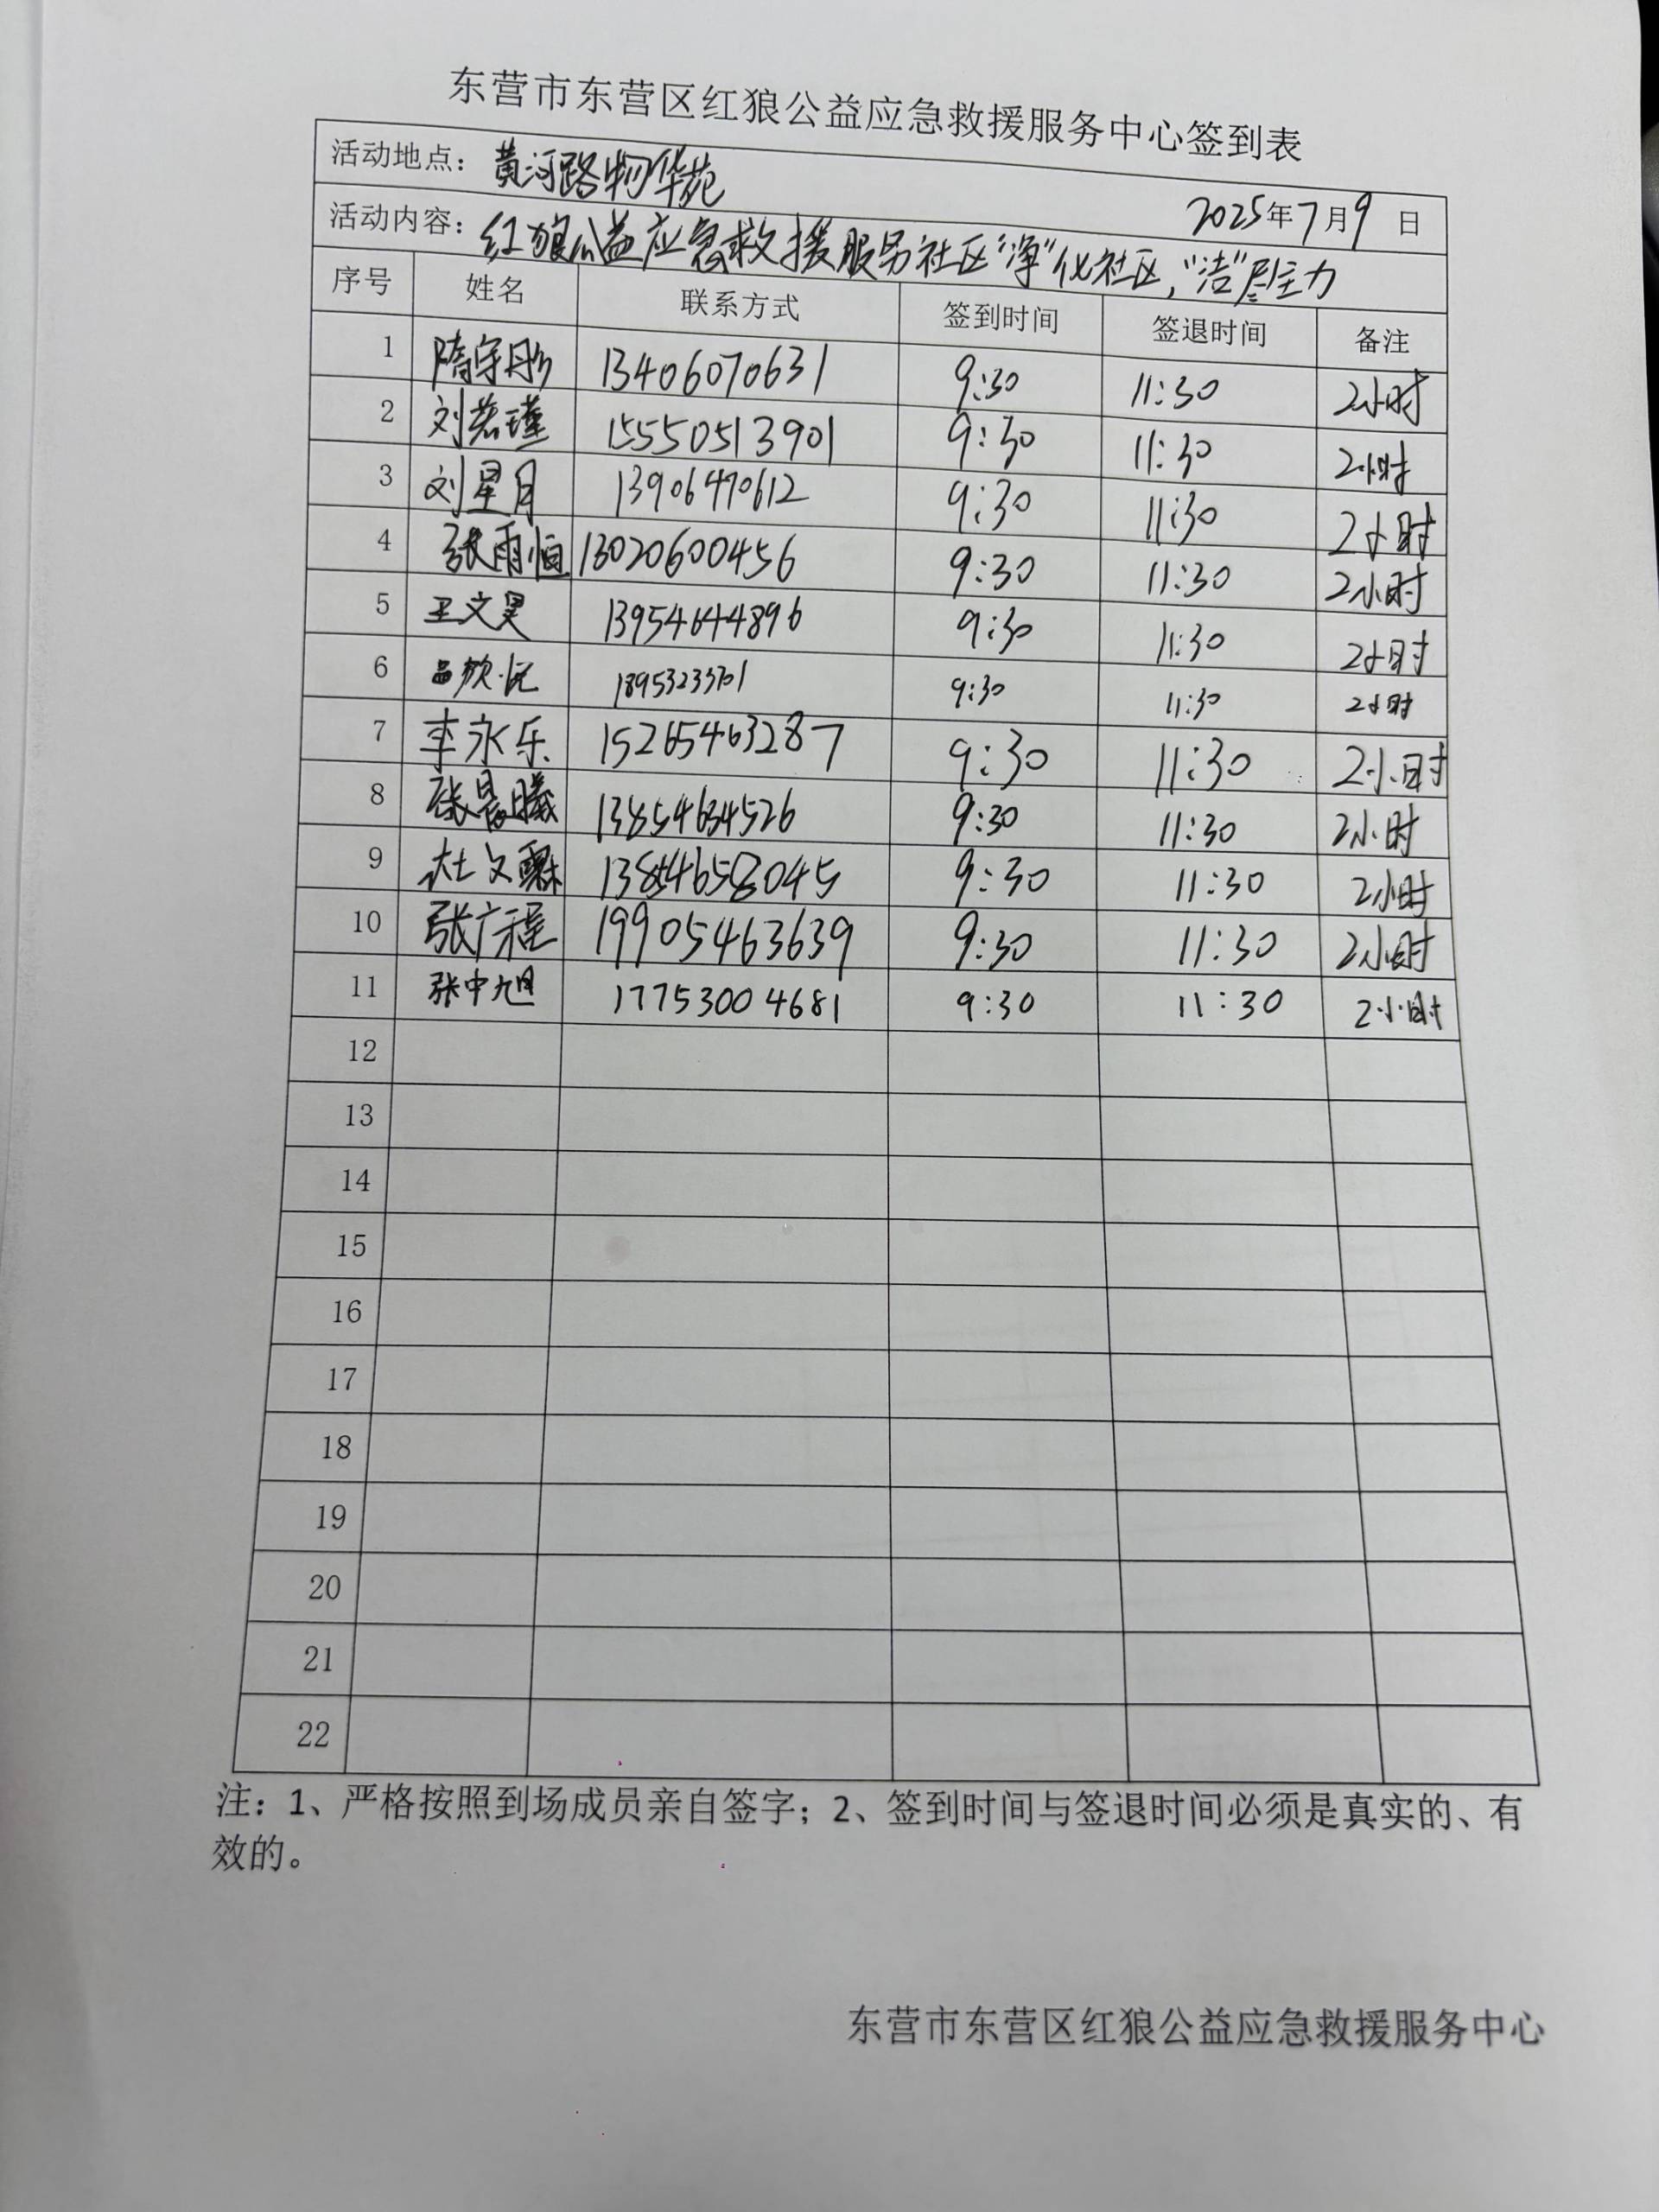 东营市东营区红狼公益应急救援服务中心签到表
活动地点：黄河路物华苑 2025年7月9日
活动内容：红狼公益应急救援服务社区“净”化社区，“洁”尽全力
序号 姓名 联系方式 签到时间 签退时间 备注
1 隋宇彤 13406070631 9:30 11:30 2小时
2 刘若瑾 15550513901 9:30 11:30 2小时
3 刘星月 13906470612 9:30 11:30 2小时
4 张雨恒 13020600456 9:30 11:30 2小时
5 王文昊 13954644896 9:30 11:30 2小时
6 9:30 11:30 2小时
7 李永乐 15265463287 9:30 11:30 2小时
8 张晨曦 13854634526 9:30 11:30 2小时
9 杜文 13854658045 9:30 11:30 2小时
10 张广程 19905463639 9:30 11:30 2小时
11 张中旭 17753004681 9:30 11:30 2小时
12
13
14
15
16
17
18
19
20
21
22
注：1、严格按照到场成员亲自签字；2、签到时间与签退时间必须是真实的、有
效的。
东营市东营区红狼公益应急救援服务中心